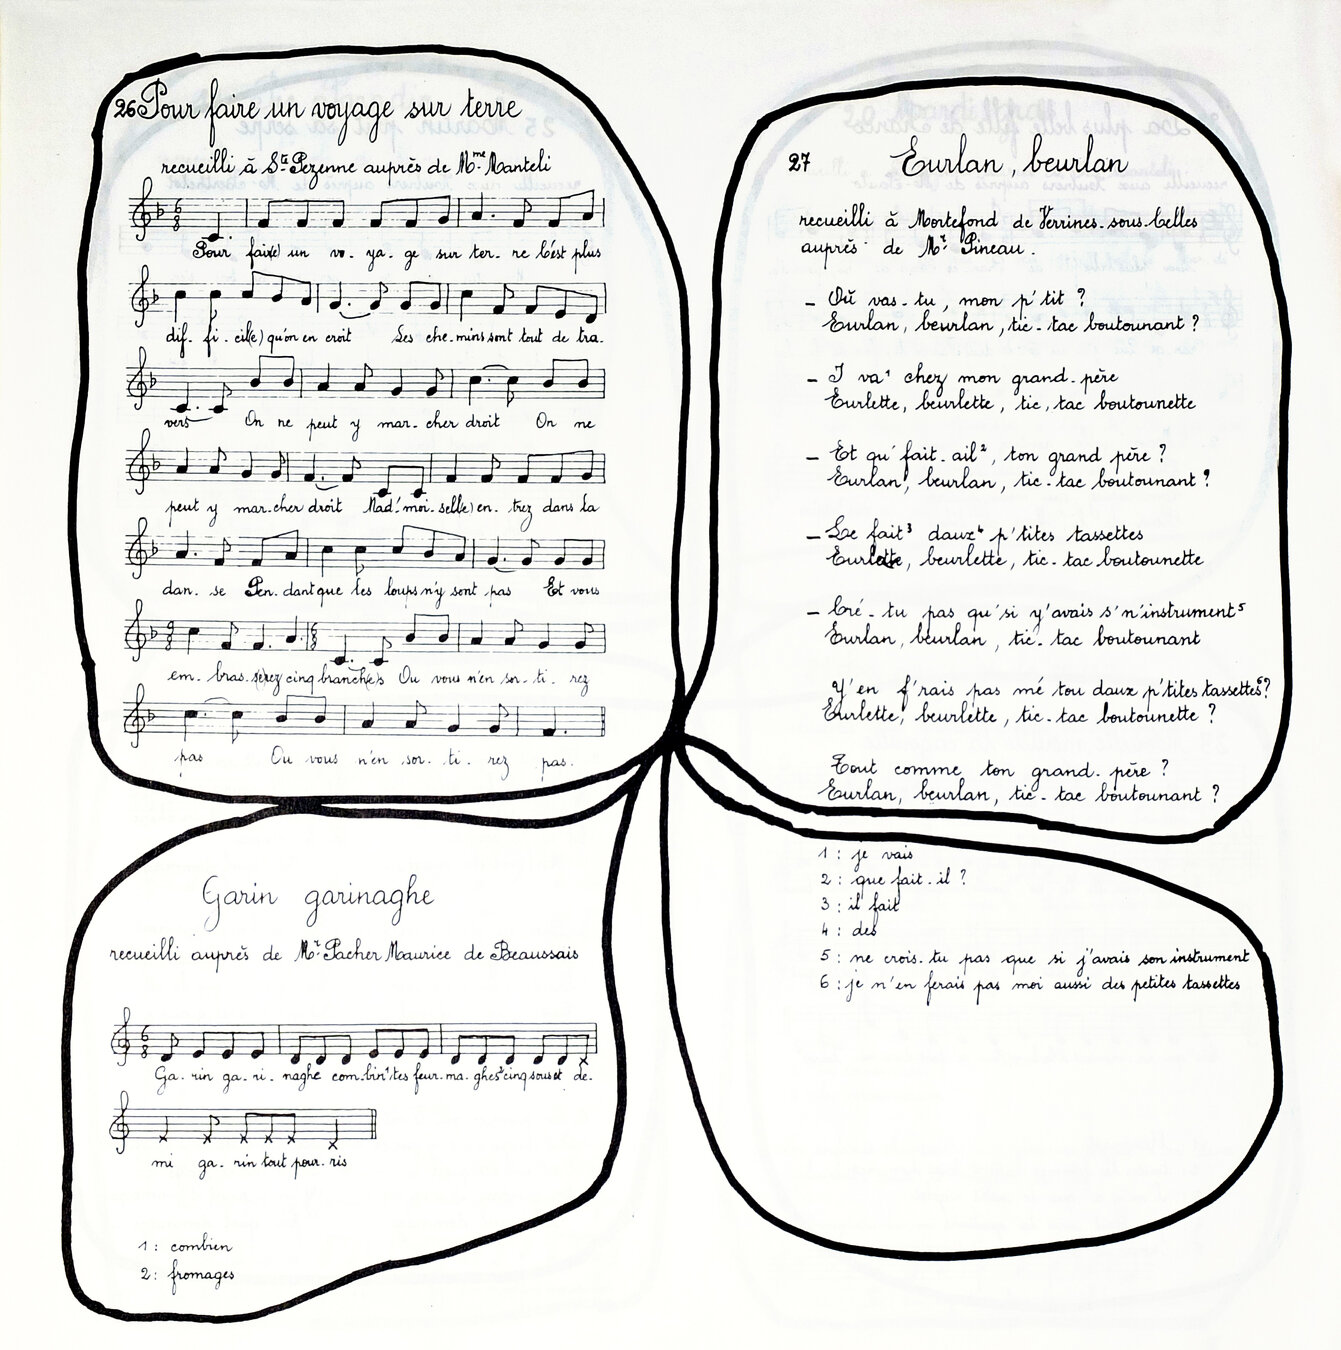 26 Pour faire un voyage sur terre
recueilli à Ste Pezenne auprès de Mme Manteli
Pour fair(e) un vo- ya- ge sur ter- re C'est plus
dif- fi- cil(e) qu'on en croit Les che-mins sont tout de tra-
vers On ne peut y mar- cher droit On ne
peut y mar-cher droit Mad'moi-sell(e) en- trez dans la
dan- se Pen-dant que les loups n'y sont pas Et vous
em- bras-serez cinq branch(e)s Ou vous n'en sor- ti- rez
pas Ou vous n'en sor- ti- rez pas.
Garin garinaghe
recueilli auprès de Mr Pacher Maurice de Beaussais
Ga- rin ga- ri- naghe com-bin'1 tes feur-ma-ghes2 cinq sous et de-
mi ga- rin tout pour- ris
1 : combien
2 : fromages
27 Eurlan, beurlan
recueilli à Mortefond de Verrines-sous-Celles
auprès de Mr Pineau.
- Où vas-tu, mon p'tit ?
Eurlan, beurlan, tic-tac boutounant ?
- I va1 chez mon grand-père
Eurlette, beurlette, tic-tac boutounette
- Et qu'fait-ail2, ton grand père ?
Eurlan, beurlan, tic-tac boutounant ?
- Le fait3 daux4 p'tites tassettes
Eurlette, beurlette, tic-tac boutounette
- Cré-tu pas qu'si y'avais s'n'instrument5
Eurlan, beurlan, tic-tac boutounant
Y'en f'rais pas mé tou daux p'tites tassettes6?
Eurlette, beurlette, tic-tac boutounette ?
Tout comme ton grand-père ?
Eurlan, beurlan, tic-tac boutounant ?
1 : je vais
2 : que fait-il ?
3 : il fait
4 : des
5 : ne crois-tu pas que si j'avais son instrument
6 : je n'en ferais pas moi aussi des petites tassettes